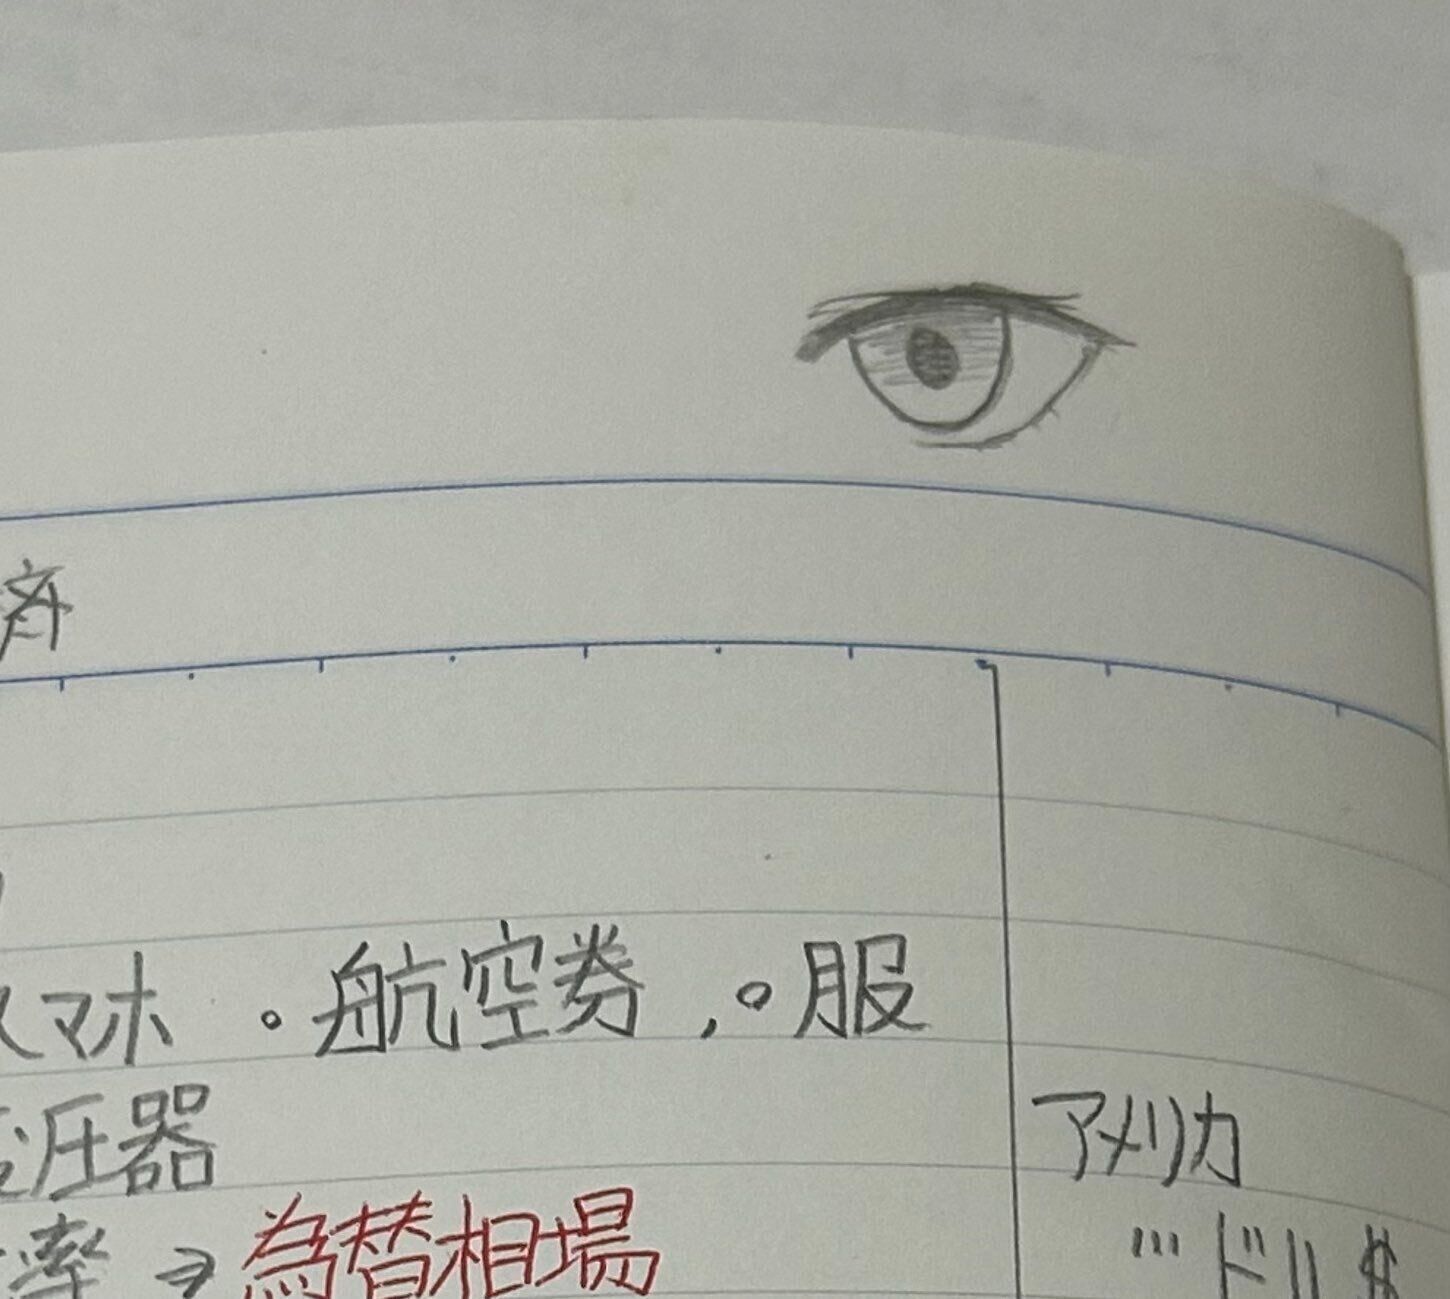 済
スマホ ・航空券,・服
変圧器
アメリカ
率⇒為替相場
…ドル $